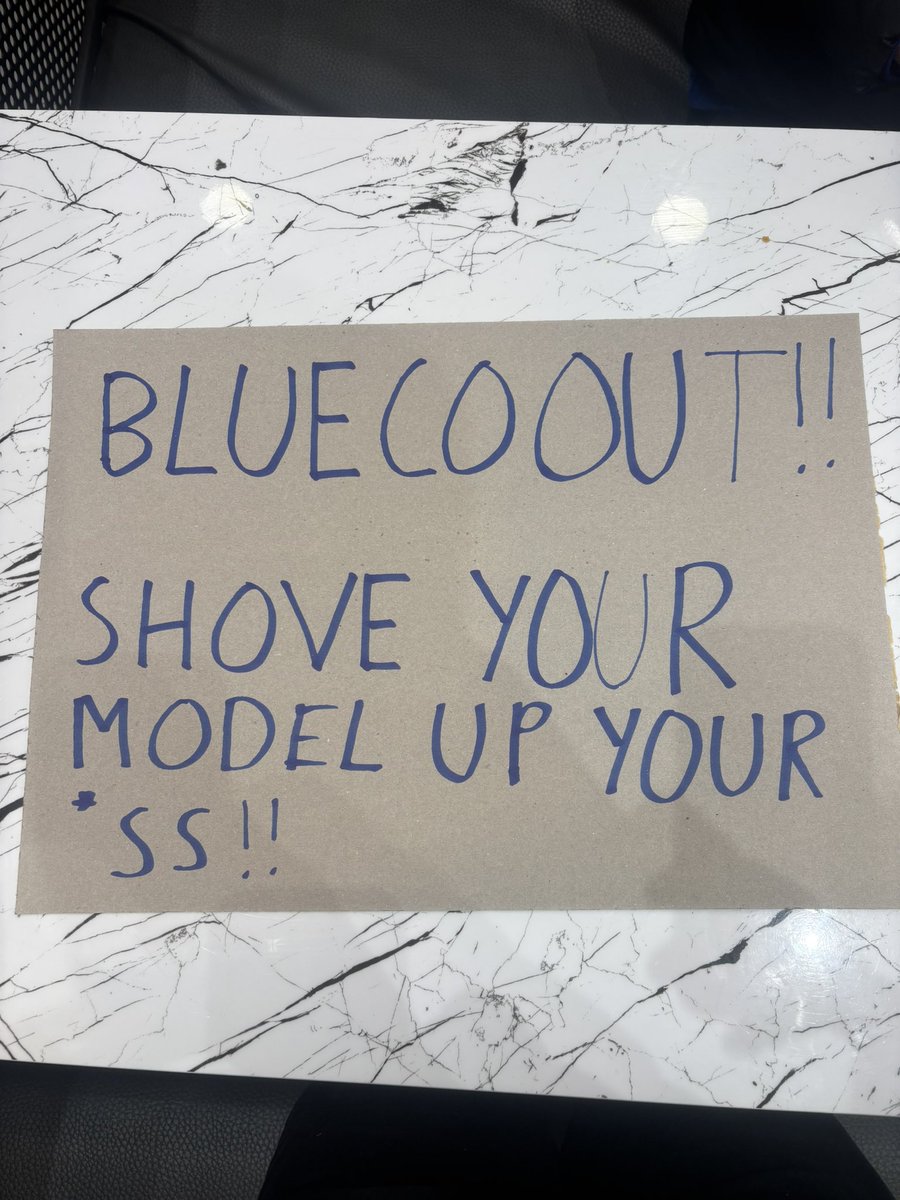 BLUECO OUT!!
SHOVE YOUR
MODEL UP YOUR
*SS!!